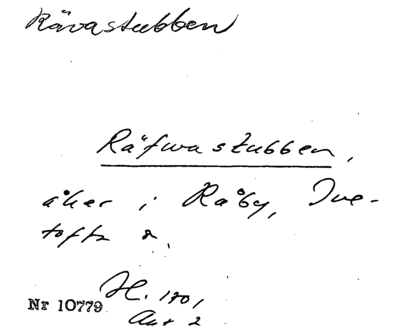 Rävastubben
Räfwastubben,
åker i Råby, Tve-
tofta s.
H. 170,
Nr 10779
Akt 2